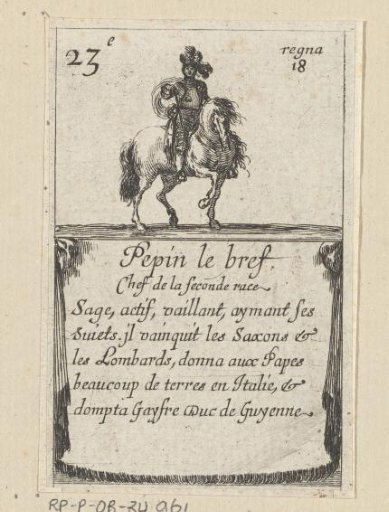 23e
regna
18
Pepin le bref.
Chef de la seconde race
Sage, actif, vaillant, aymant ses
suiets. jl vainquit les Saxons &
les Lombards, donna aux Papes
beaucoup de terres en Italie, &
dompta Gayfre Duc de Guyenne
RP-P-OB-34.961